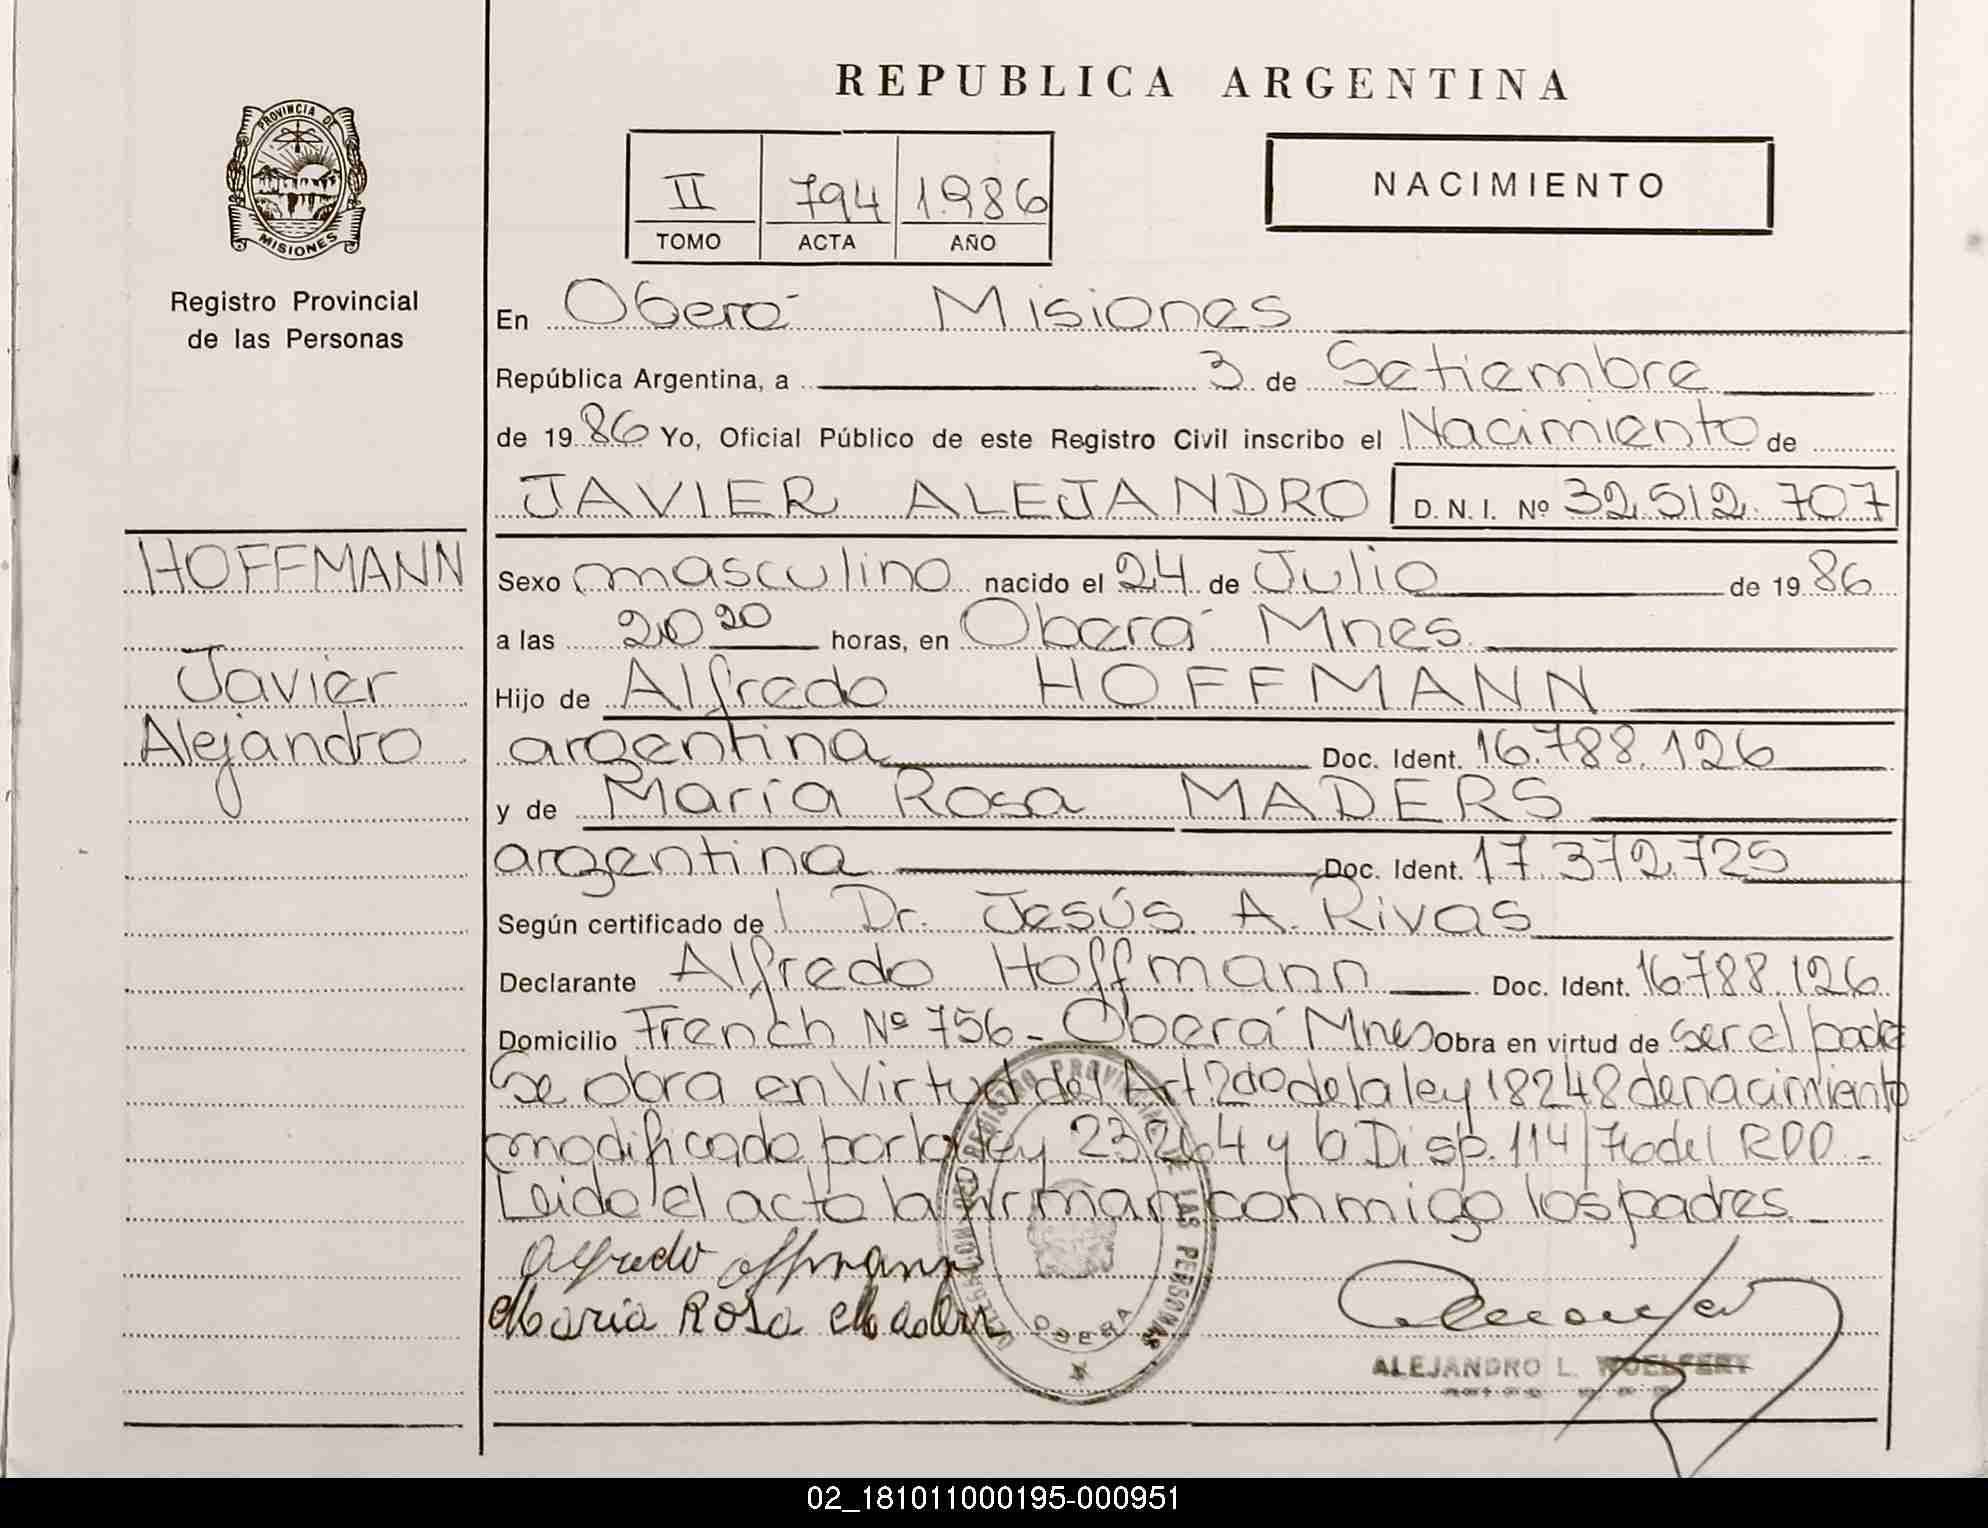 REPUBLICA ARGENTINA
PROVINCIA DE
MISIONES
Registro Provincial
de las Personas
II 794 1.986
TOMO ACTA AÑO
NACIMIENTO
En Oberá Misiones
República Argentina, a 3 de Setiembre
de 19 86 Yo, Oficial Público de este Registro Civil inscribo el Nacimiento de
JAVIER ALEJANDRO D. N. I. Nº 32.512.707
HOFFMANN
Javier
Alejandro
Sexo masculino nacido el 24 de Julio de 19 86
a las 20 20 horas, en Oberá Mnes.
Hijo de Alfredo HOFFMANN
argentina Doc. Ident. 16.788.126
y de María Rosa MADERS
argentina Doc. Ident. 17.372.725
Según certificado de l Dr. Jesús A. Rivas
Declarante Alfredo Hoffmann Doc. Ident. 16.788.126
Domicilio French Nº 756 - Oberá Mnes Obra en virtud de ser el padre
Se obra en Virtud del Art. 2do de la ley 18248 de nacimiento
modificado por la ley 23264 y la Disp. 114/76 del RPP -
Leido el acto la firman conmigo los padres. -
Alfredo Offmann
Maria Rosa Maders
REGISTRO PROVINCIAL DE LAS PERSONAS
OBERA
ALEJANDRO L. WOELFERT
02_181011000195-000951